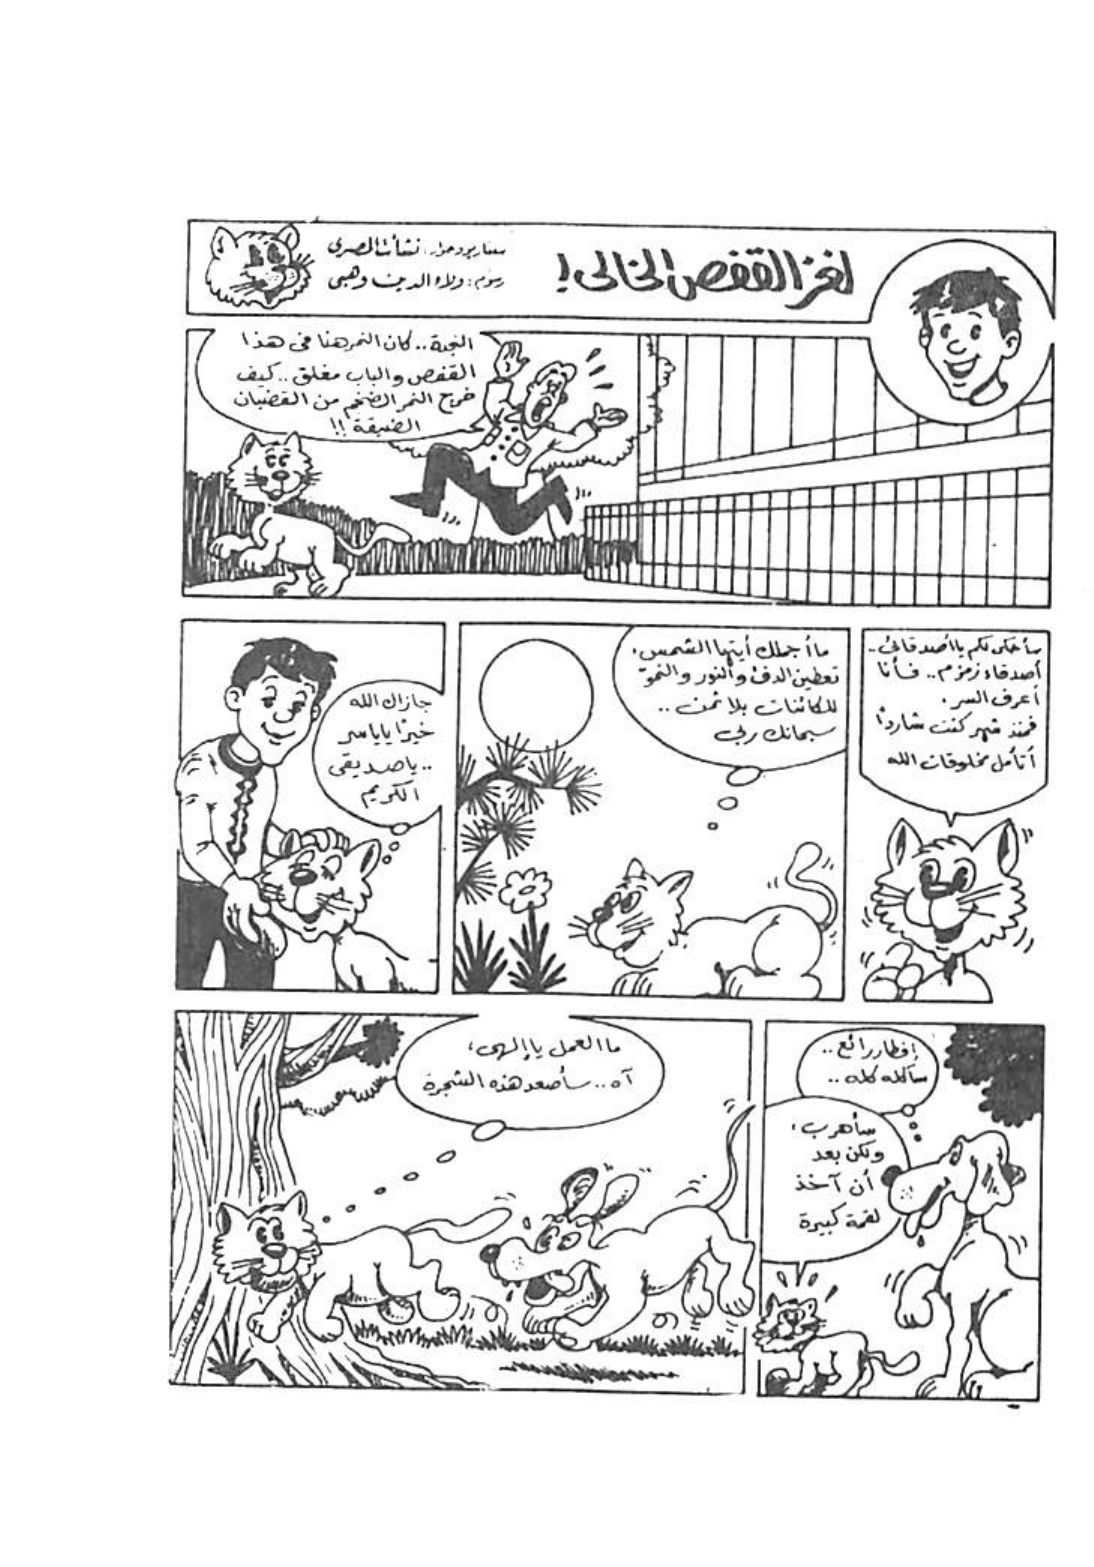 لغز القفص الخالى !
سيناريو وحوار : نشأت المصرى
رسوم : ولاء الدين وهبى
النجدة .. كان النمر هنا فى هذا
القفص والباب مغلق .. كيف
خرج النمر الضخم من القضبان
الضيقة !!
سأحكى لكم يا أصدقائى ..
أصدقاء زمزم .. فأنا
أعرف السر .
فمنذ شهر كنت شاردًا
أتأمل مخلوقات الله
ما أجملك أيتها الشمس ،
تعطين الدفء والنور والنمو
للكائنات بلا ثمن ..
سبحانك ربى
جازاك الله
خيرًا يا ياسر
.. يا صديقى
الكريم
إفطار رائع ..
سآكله كله ..
سأهرب ،
ولكن بعد
أن آخذ
لقمة كبيرة
ما العمل يا إلهى ،
آه .. سأصعد هذه الشجرة